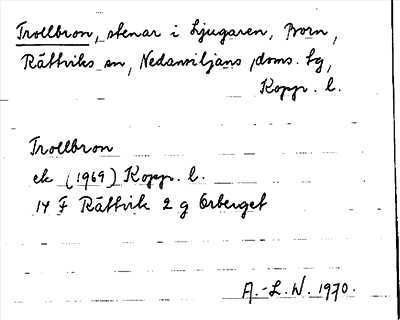 Trollbron, stenar i Ljugaren, Born,
Rättviks sn, Nedansiljans doms. tg,
Kopp. l.
Trollbron
ek (1969) Kopp. l.
14 F Rättvik 2 g Orberget
A.-L. W. 1970.